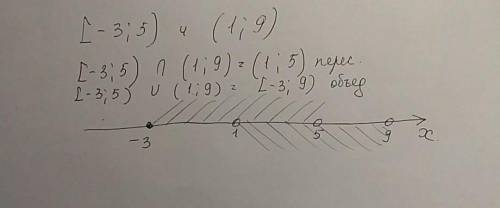 [-3; 5) и (1; 9)
[-3; 5) ∩ (1; 9) = (1; 5) перес.
[-3; 5) ∪ (1; 9) = [-3; 9) объед
-3 1 5 9 x.